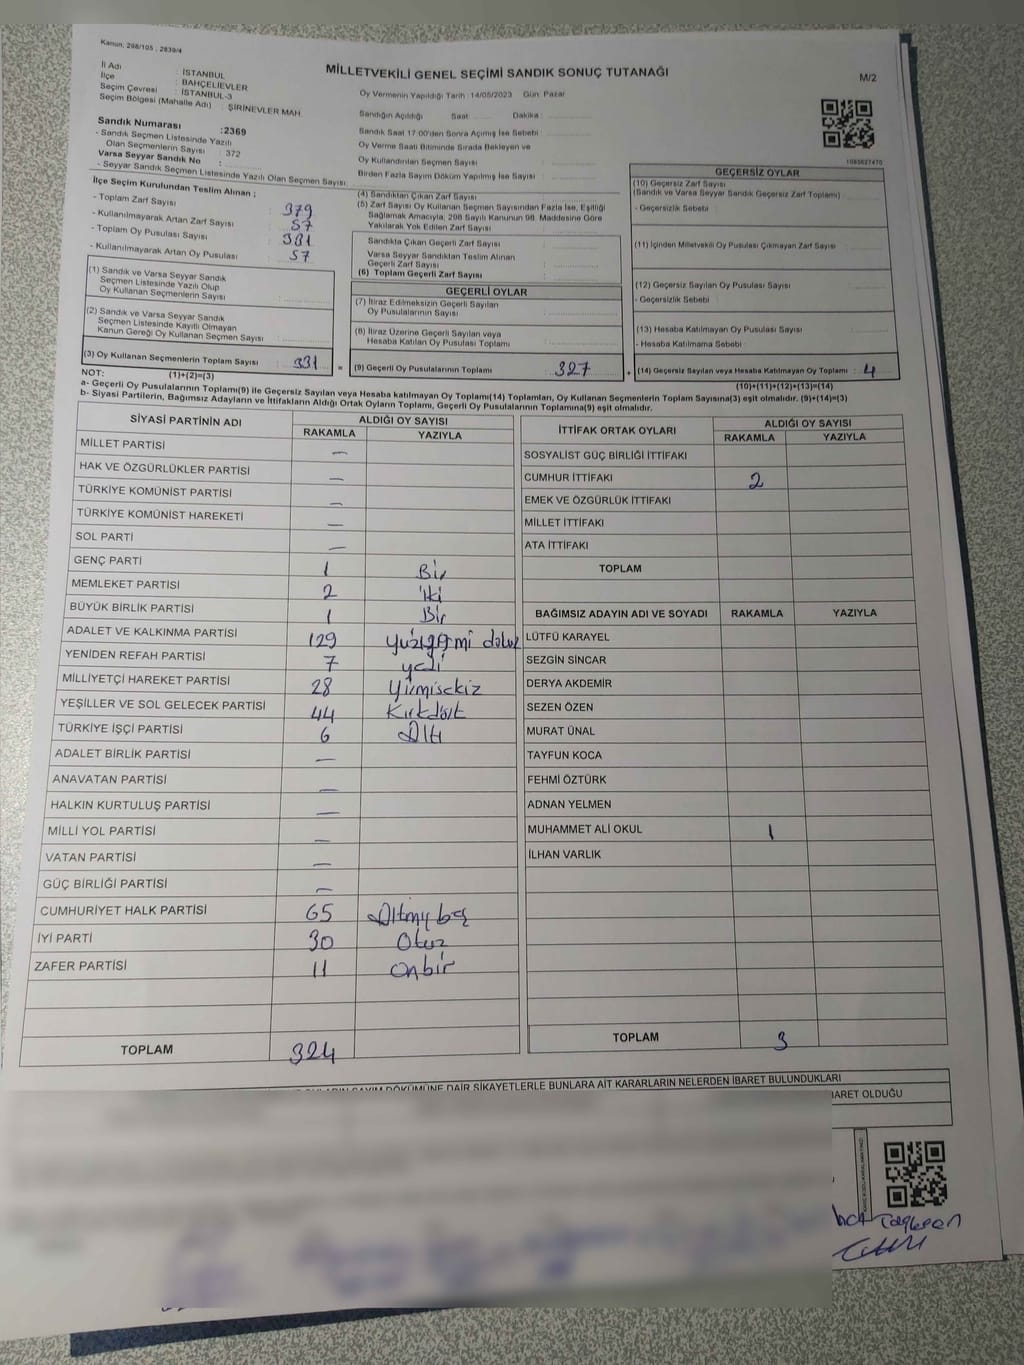 Kanun, 298/105 , 2839/4
İl Adı : İSTANBUL
İlçe : BAHÇELİEVLER
Seçim Çevresi : İSTANBUL-3
Seçim Bölgesi (Mahalle Adı) : ŞİRİNEVLER MAH.
Sandık Numarası :2369
- Sandık Seçmen Listesinde Yazılı
Olan Seçmenlerin Sayısı : 372
Varsa Seyyar Sandık No :
- Seyyar Sandık Seçmen Listesinde Yazılı Olan Seçmen Sayısı:
MİLLETVEKİLİ GENEL SEÇİMİ SANDIK SONUÇ TUTANAĞI
M/2
Oy Vermenin Yapıldığı Tarih : 14/05/2023 Gün: Pazar
Sandığın Açıldığı Saat Dakika :
Sandık Saat 17:00'den Sonra Açılmış İse Sebebi :
Oy Verme Saati Bitiminde Sırada Bekleyen ve
Oy Kullandırılan Seçmen Sayısı :
Birden Fazla Sayım Döküm Yapılmış İse Sayısı :
İlçe Seçim Kurulundan Teslim Alınan ;
- Toplam Zarf Sayısı : 379
- Kullanılmayarak Artan Zarf Sayısı : 57
- Toplam Oy Pusulası Sayısı : 381
- Kullanılmayarak Artan Oy Pusulası : 57
(1) Sandık ve Varsa Seyyar Sandık
Seçmen Listesinde Yazılı Olup
Oy Kullanan Seçmenlerin Sayısı :
(2) Sandık ve Varsa Seyyar Sandık
Seçmen Listesinde Kayıtlı Olmayan
Kanun Gereği Oy Kullanan Seçmen Sayısı :
(3) Oy Kullanan Seçmenlerin Toplam Sayısı : 331 =
(1)+(2)=(3)
(4) Sandıktan Çıkan Zarf Sayısı
(5) Zarf Sayısı Oy Kullanan Seçmen Sayısından Fazla İse, Eşitliği
Sağlamak Amacıyla, 298 Sayılı Kanunun 98. Maddesine Göre
Yakılarak Yok Edilen Zarf Sayısı :
Sandıkta Çıkan Geçerli Zarf Sayısı :
Varsa Seyyar Sandıktan Teslim Alınan
Geçerli Zarf Sayısı :
(6) Toplam Geçerli Zarf Sayısı :
GEÇERLİ OYLAR
(7) İtiraz Edilmeksizin Geçerli Sayılan
Oy Pusulalarının Sayısı :
(8) İtiraz Üzerine Geçerli Sayılan veya
Hesaba Katılan Oy Pusulası Toplamı :
(9) Geçerli Oy Pusulalarının Toplamı : 327 +
GEÇERSİZ OYLAR
(10) Geçersiz Zarf Sayısı
(Sandık ve Varsa Seyyar Sandık Geçersiz Zarf Toplamı) :
- Geçersizlik Sebebi :
(11) İçinden Milletvekili Oy Pusulası Çıkmayan Zarf Sayısı :
(12) Geçersiz Sayılan Oy Pusulası Sayısı :
- Geçersizlik Sebebi :
(13) Hesaba Katılmayan Oy Pusulası Sayısı :
- Hesaba Katılmama Sebebi :
(14) Geçersiz Sayılan veya Hesaba Katılmayan Oy Toplamı : 4
(10)+(11)+(12)+(13)=(14)
NOT:
a- Geçerli Oy Pusulalarının Toplamı(9) ile Geçersiz Sayılan veya Hesaba katılmayan Oy Toplamı(14) Toplamları, Oy Kullanan Seçmenlerin Toplam Sayısına(3) eşit olmalıdır. (9)+(14)=(3)
b- Siyasi Partilerin, Bağımsız Adayların ve İttifakların Aldığı Ortak Oyların Toplamı, Geçerli Oy Pusulalarının Toplamına(9) eşit olmalıdır.
SİYASİ PARTİNİN ADI ALDIĞI OY SAYISI
RAKAMLA YAZIYLA
MİLLET PARTİSİ —
HAK VE ÖZGÜRLÜKLER PARTİSİ —
TÜRKİYE KOMÜNİST PARTİSİ —
TÜRKİYE KOMÜNİST HAREKETİ —
SOL PARTİ —
GENÇ PARTİ 1 Bir
MEMLEKET PARTİSİ 2 iki
BÜYÜK BİRLİK PARTİSİ 1 Bir
ADALET VE KALKINMA PARTİSİ 129 yüzyirmi dokuz
YENİDEN REFAH PARTİSİ 7 yedi
MİLLİYETÇİ HAREKET PARTİSİ 28 Yirmisekiz
YEŞİLLER VE SOL GELECEK PARTİSİ 44 Kırkdört
TÜRKİYE İŞÇİ PARTİSİ 6 Altı
ADALET BİRLİK PARTİSİ —
ANAVATAN PARTİSİ —
HALKIN KURTULUŞ PARTİSİ —
MİLLİ YOL PARTİSİ —
VATAN PARTİSİ —
GÜÇ BİRLİĞİ PARTİSİ —
CUMHURİYET HALK PARTİSİ 65 Altmış beş
İYİ PARTİ 30 Otuz
ZAFER PARTİSİ 11 onbir
TOPLAM 324
İTTİFAK ORTAK OYLARI ALDIĞI OY SAYISI
RAKAMLA YAZIYLA
SOSYALİST GÜÇ BİRLİĞİ İTTİFAKI
CUMHUR İTTİFAKI 2
EMEK VE ÖZGÜRLÜK İTTİFAKI
MİLLET İTTİFAKI
ATA İTTİFAKI
TOPLAM
BAĞIMSIZ ADAYIN ADI VE SOYADI RAKAMLA YAZIYLA
LÜTFÜ KARAYEL
SEZGİN SİNCAR
DERYA AKDEMİR
SEZEN ÖZEN
MURAT ÜNAL
TAYFUN KOCA
FEHMİ ÖZTÜRK
ADNAN YELMEN
MUHAMMET ALİ OKUL 1
İLHAN VARLIK
TOPLAM 3
SAYIM DÖKÜMÜNE DAİR ŞİKAYETLERLE BUNLARA AİT KARARLARIN NELERDEN İBARET BULUNDUKLARI
İBARET OLDUĞU